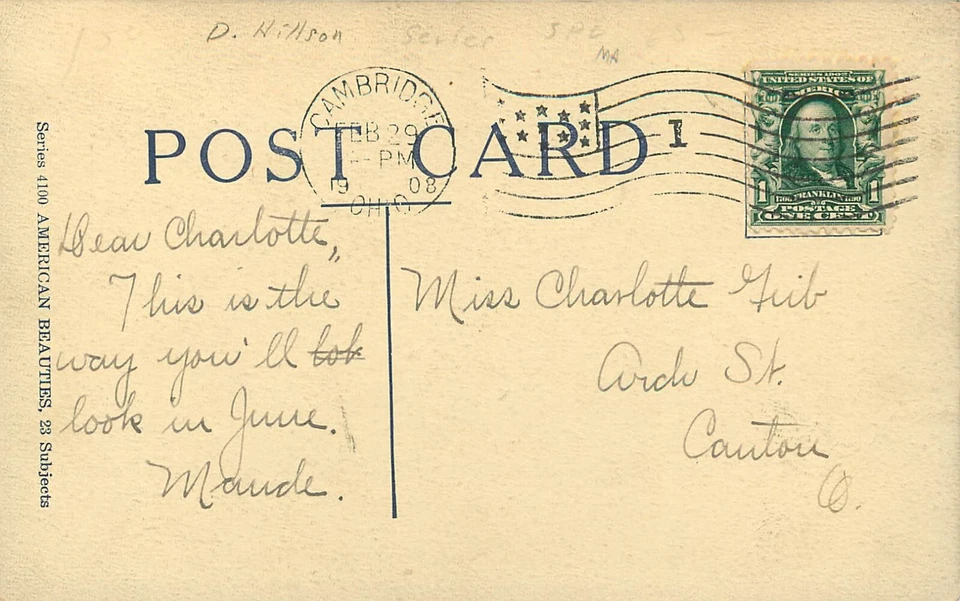 D. Hillson Series SPE
MA
CAMBRIDGE
FEB 29
PM
19 08
OHIO
POST CARD
1
SERIES 1902
UNITED STATES OF
AMERICA
1 1
1706 FRANKLIN 1790
POSTAGE
ONE CENT
Series 4100 AMERICAN BEAUTIES, 23 Subjects
Dear Charlotte,,
This is the
way you'll lok
look in June.
Maude.
Miss Charlotte Geib
Arch St.
Canton
O.